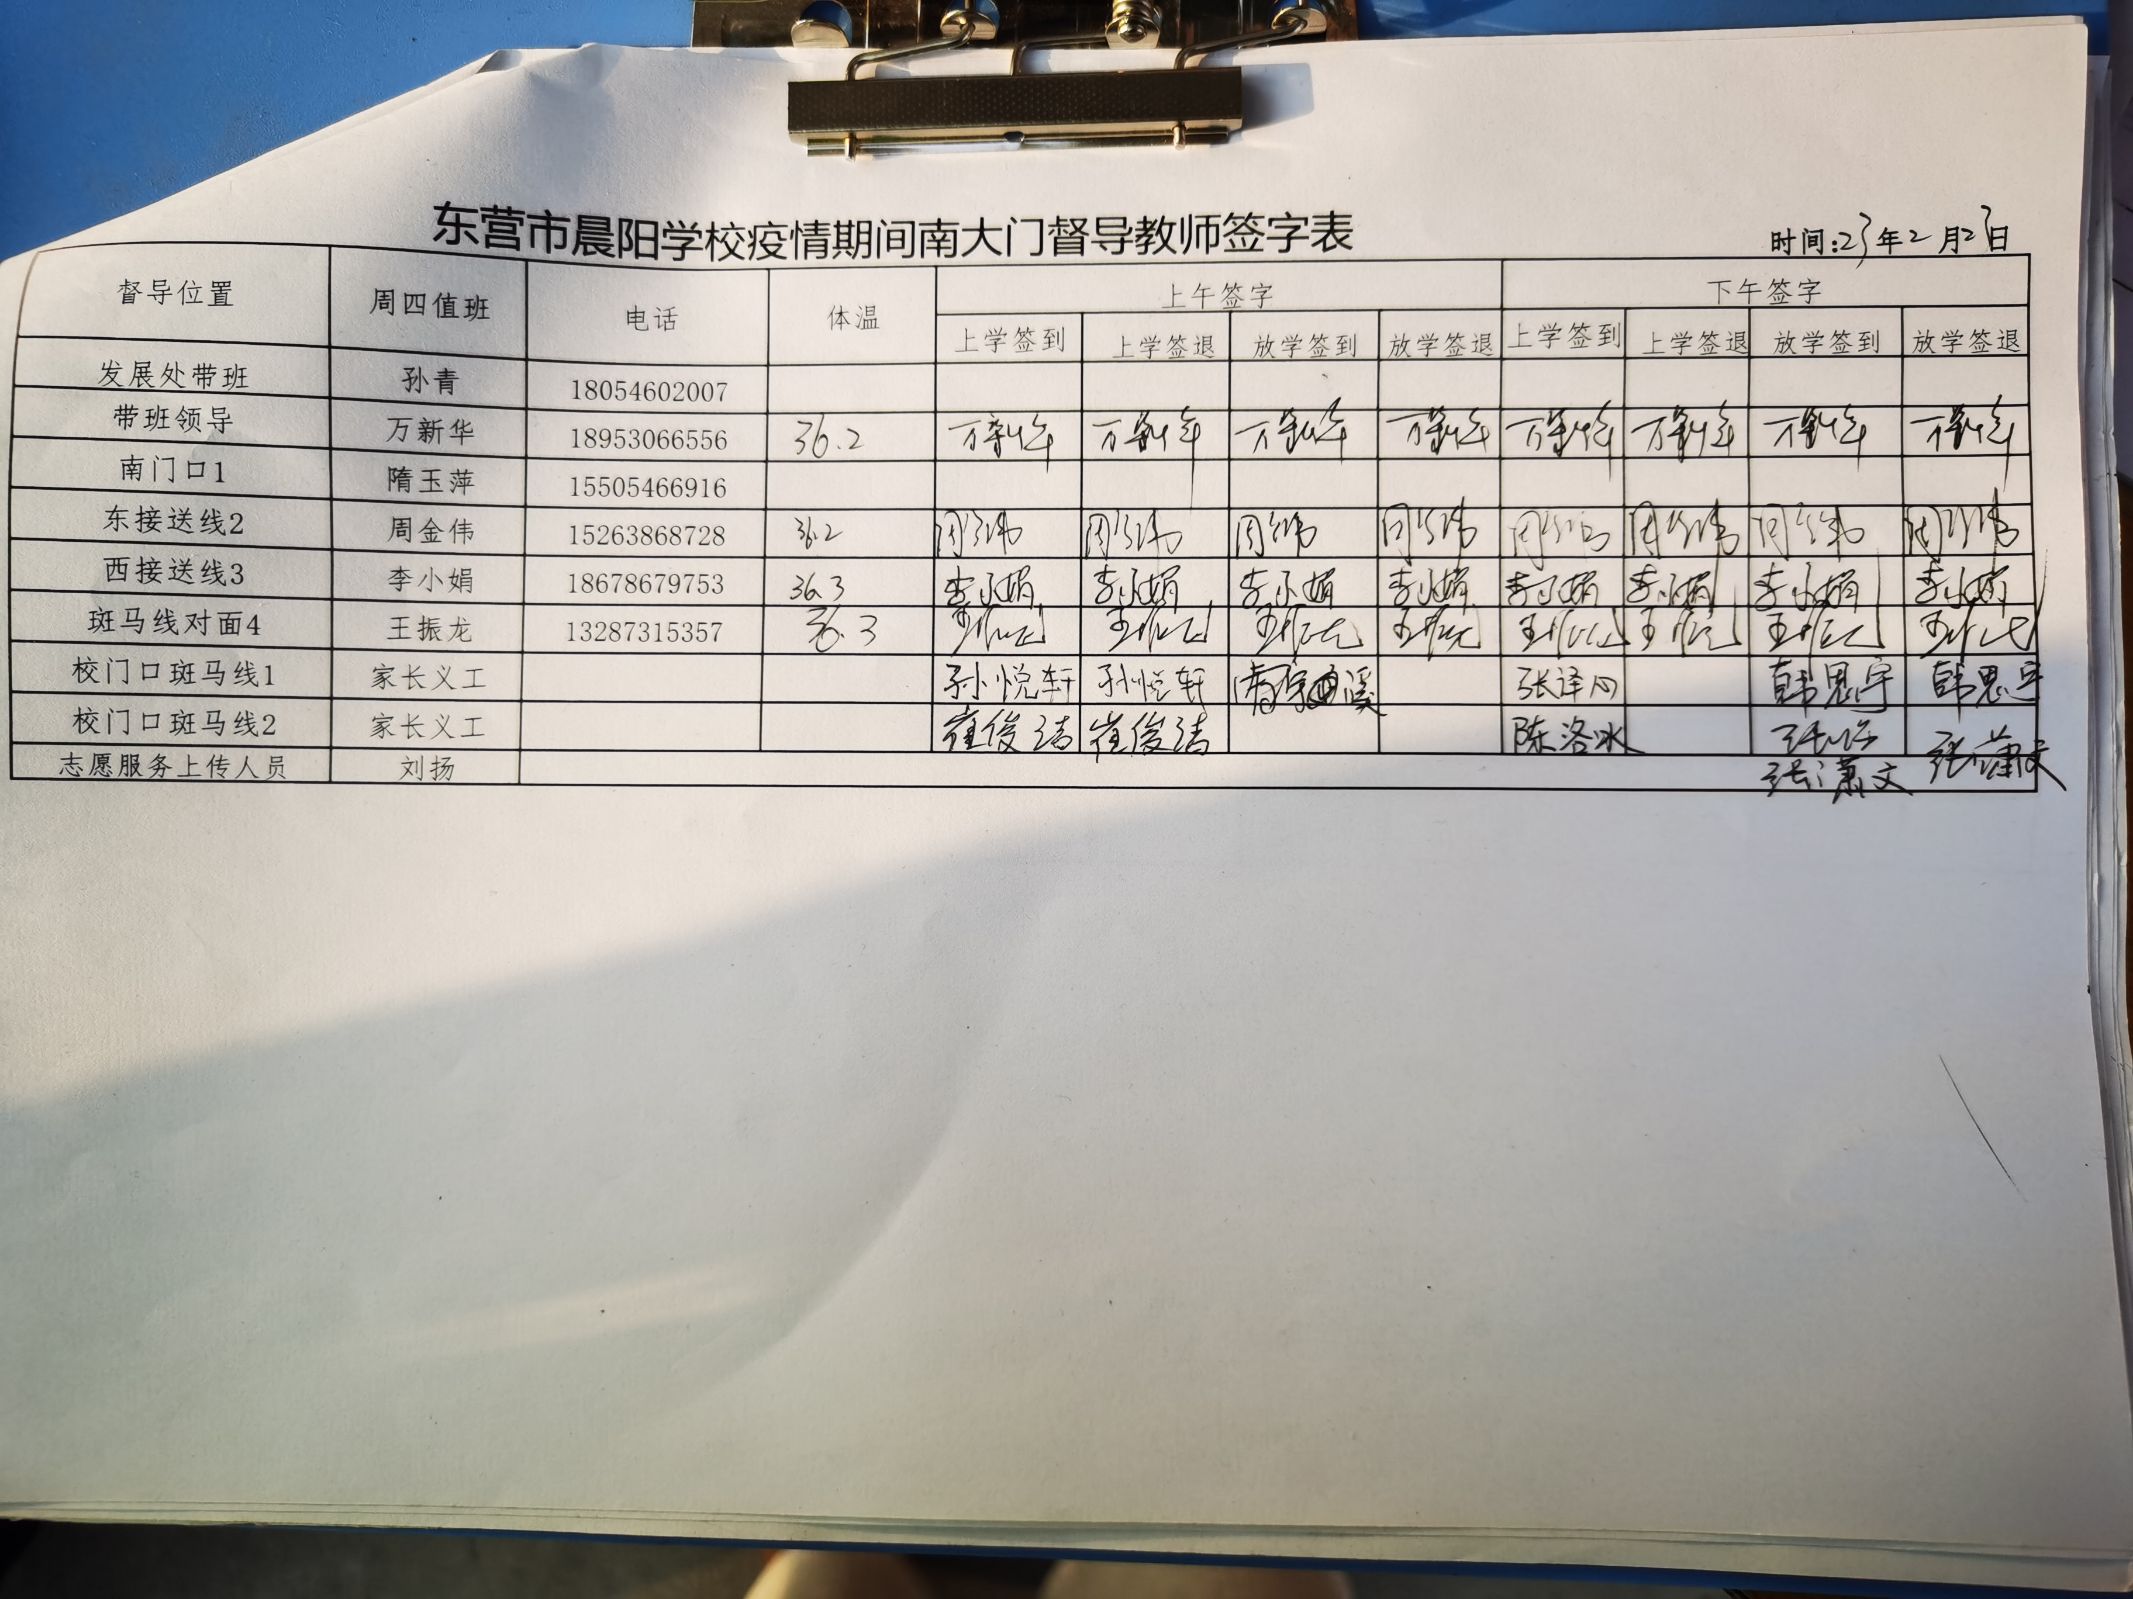 东营市晨阳学校疫情期间南大门督导教师签字表
时间:23年2月23日
督导位置 周四值班 电话 体温 上午签字 下午签字
上学签到 上学签退 放学签到 放学签退 上学签到 上学签退 放学签到 放学签退
发展处带班 孙青 18054602007
带班领导 万新华 18953066556 36.2 万新华 万新华 万新华 万新华 万新华 万新华 万新华 万新华
南门口1 隋玉萍 15505466916
东接送线2 周金伟 15263868728 36.2 周金伟 周金伟 周金伟 周金伟 周金伟 周金伟 周金伟 周金伟
西接送线3 李小娟 18678679753 36.3 李小娟 李小娟 李小娟 李小娟 李小娟 李小娟 李小娟 李小娟
斑马线对面4 王振龙 13287315357 36.3 王振龙 王振龙 王振龙 王振龙 王振龙 王振龙 王振龙 王振龙
校门口斑马线1 家长义工 孙悦轩 孙悦轩 韩思宇 韩思宇
校门口斑马线2 家长义工 崔俊洁 崔俊洁 陈洛冰
志愿服务上传人员 刘扬 张潇文 张潇文